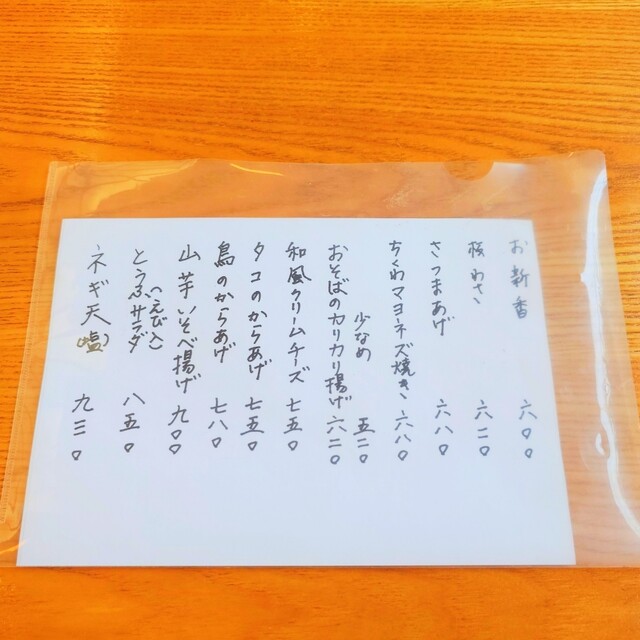 お新香 六〇〇
板わさ 六二〇
さつまあげ 六八〇
ちくわマヨネズ焼き 六八〇
少なめ 五三〇
おそばのカリカリ揚げ 六二〇
和風クリームチーズ 七五〇
タコのからあげ 七五〇
鳥のからあげ 七八〇
山芋いそべ揚げ 九〇〇
とうふサラダ 八五〇
(えび入)
ネギ天(塩) 九三〇